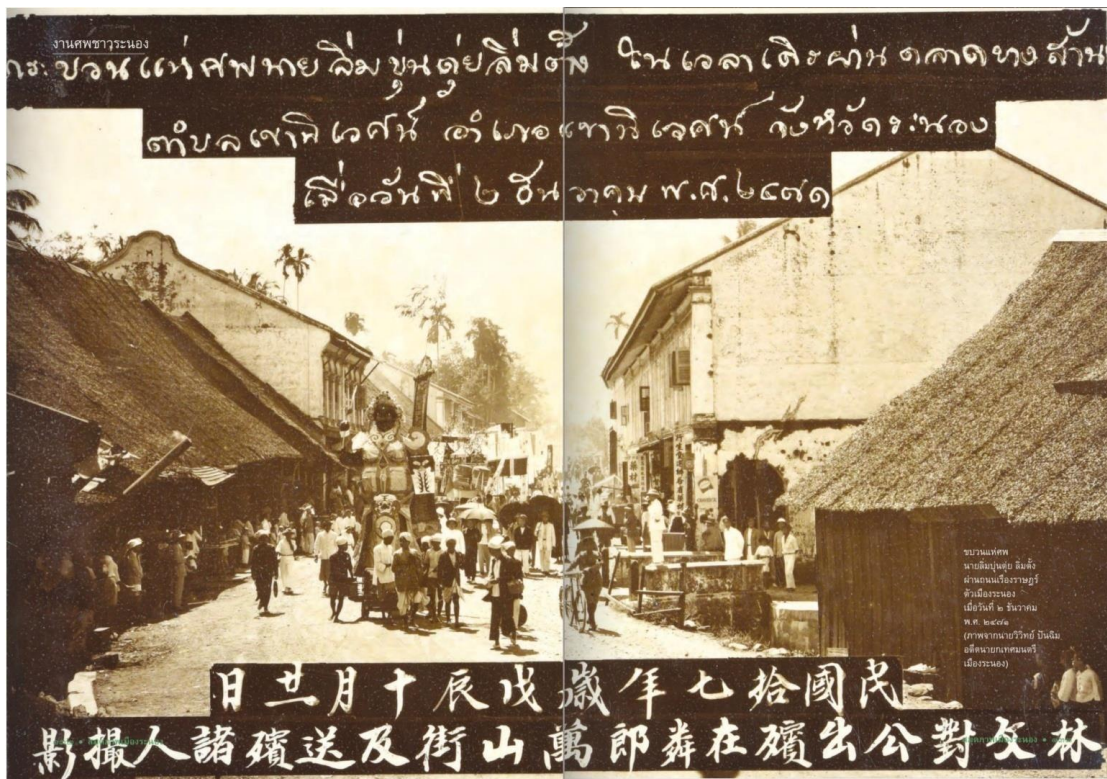 งานศพชาวระนอง
กระบวนแห่ศพนายลิ่มขุ่นตุ่ยลิ่มตั้ง ในเวลาเดิรผ่านตลาดบางส้าน
ตำบลเขานิเวศน์ อำเภอเขานิเวศน์ จังหวัดระนอง
เมื่อวันที่ ๒ ธันวาคม พ.ศ. ๒๔๗๑
ขบวนแห่ศพ
นายลิ่มบุ่นตุ่ย ลิ่มตั้ง
ผ่านถนนเรืองราษฎร์
ตัวเมืองระนอง
เมื่อวันที่ ๒ ธันวาคม
พ.ศ. ๒๔๗๑
(ภาพจากนายวิวิทย์ ปันฉิม
อดีตนายกเทศมนตรี
เมืองระนอง)
民國拾七年歲戊辰十月廿一日
林文對公出殯在粦郎萬山街及送殯諸人攝影